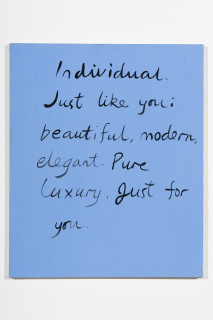 Individual.
Just like you:
beautiful, modern,
elegant. Pure
luxury. Just for
you.